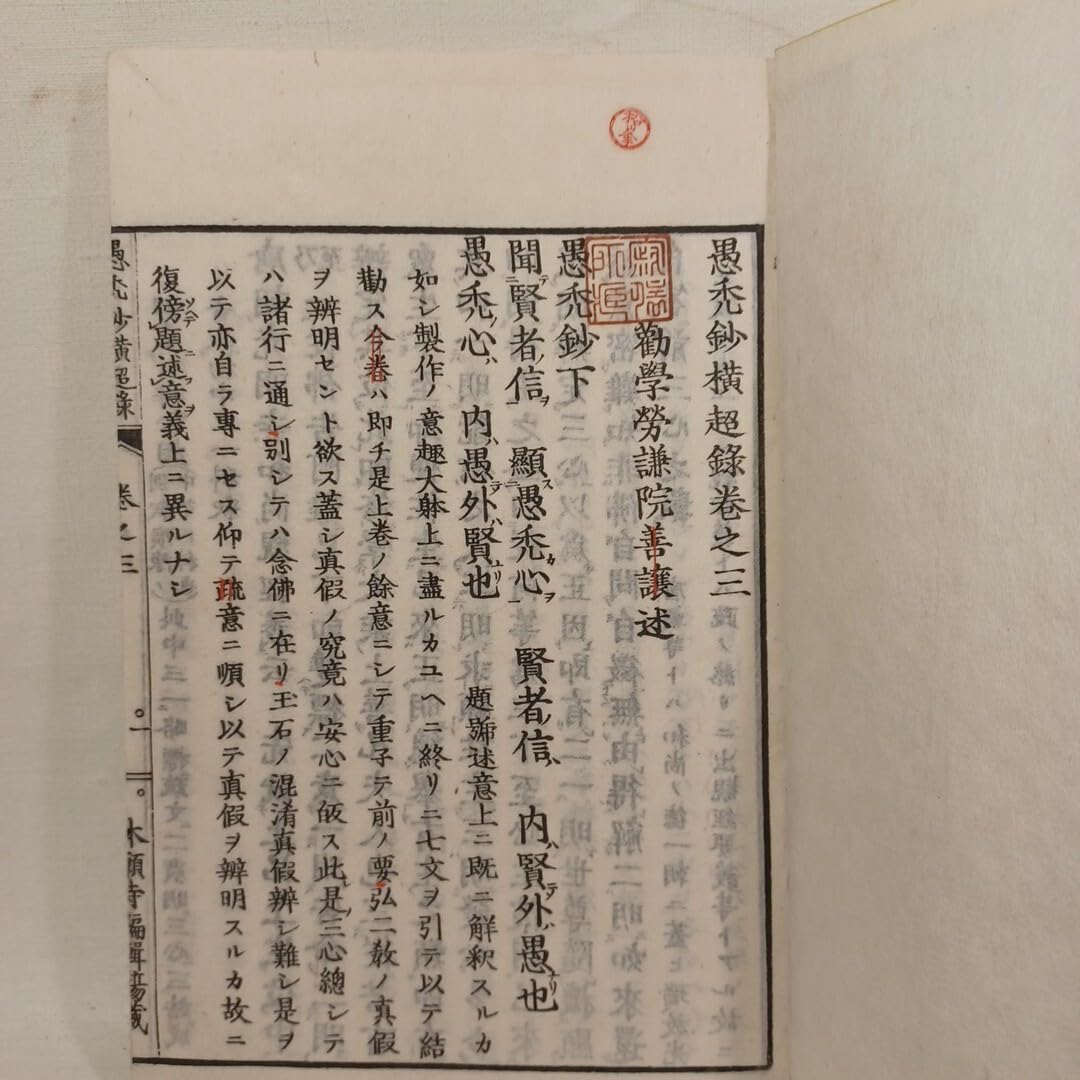 愚禿鈔横超錄卷之三
勸學勞謙院善讓述
愚禿鈔下
聞賢者信 顯愚禿心 賢者信 内賢外愚也
愚禿心 内愚外賢也 題號述意上ニ既ニ解釈スルカ
如シ製作ノ意趣大躰上ニ盡ルカユヘニ終リニ七文ヲ引テ以テ結
勸ス今卷ハ即チ是上卷ノ餘意ニシテ重子テ前ノ要弘二敎ノ真假
ヲ辨明セント欲ス蓋シ真假ノ究竟ハ安心ニ皈ス此是三心總シテ
ハ諸行ニ通シ別シテハ念佛ニ在リ玉石ノ混淆真假辨シ難シ是ヲ
以テ亦自ラ專ニセス仰テ疏意ニ順シ以テ真假ヲ辨明スルカ故ニ
復傍題述意義上ニ異ルナシ
愚禿鈔横超錄 卷之三 一 本願寺編輯塲藏